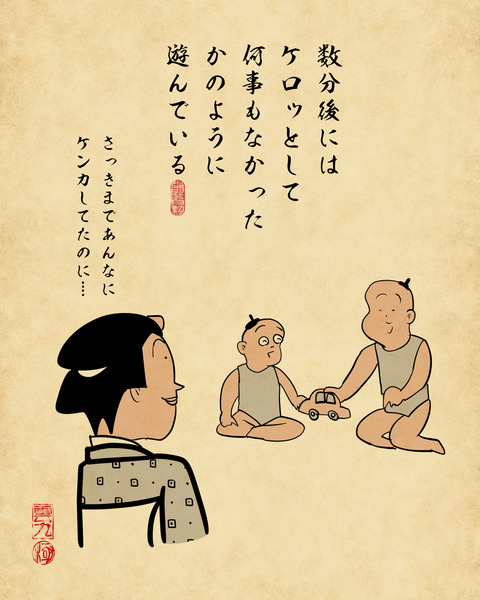 数分後には
ケロッとして
何事もなかった
かのように
遊んでいる
さっきまであんなに
ケンカしてたのに…